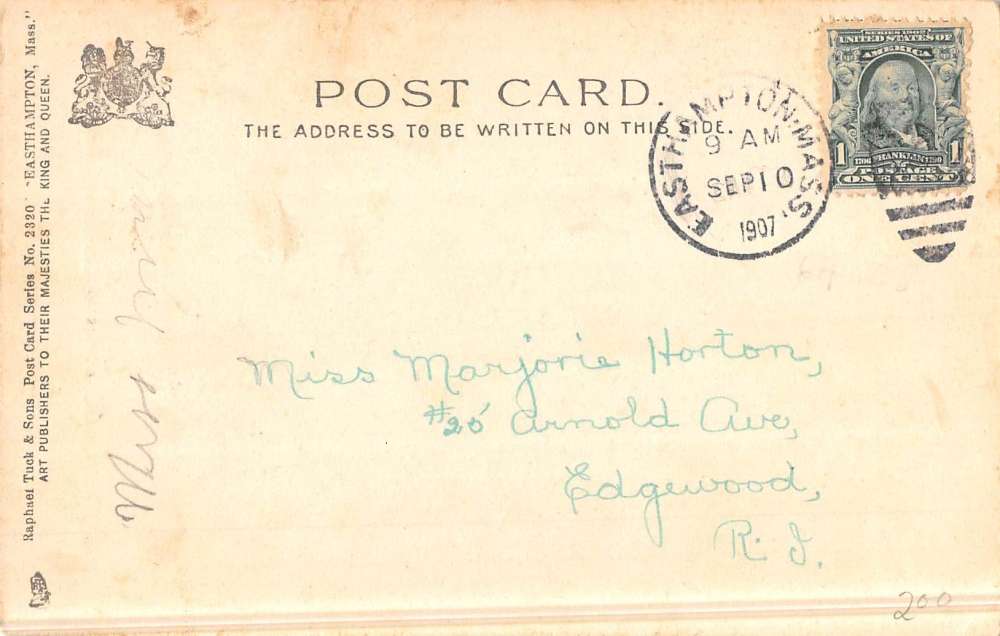 POST CARD.
THE ADDRESS TO BE WRITTEN ON THIS SIDE.
Raphael Tuck & Sons Post Card Series No. 2320 "EASTHAMPTON, Mass."
ART PUBLISHERS TO THEIR MAJESTIES THE KING AND QUEEN.
EASTHAMPTON, MASS.
9 AM
SEP 10
1907
SERIES 1902
UNITED STATES OF
AMERICA
1 FRANKLIN 1
POSTAGE
ONE CENT
Miss Marjorie Horton,
#25 Arnold Ave,
Edgewood,
R. I.
Miss
200